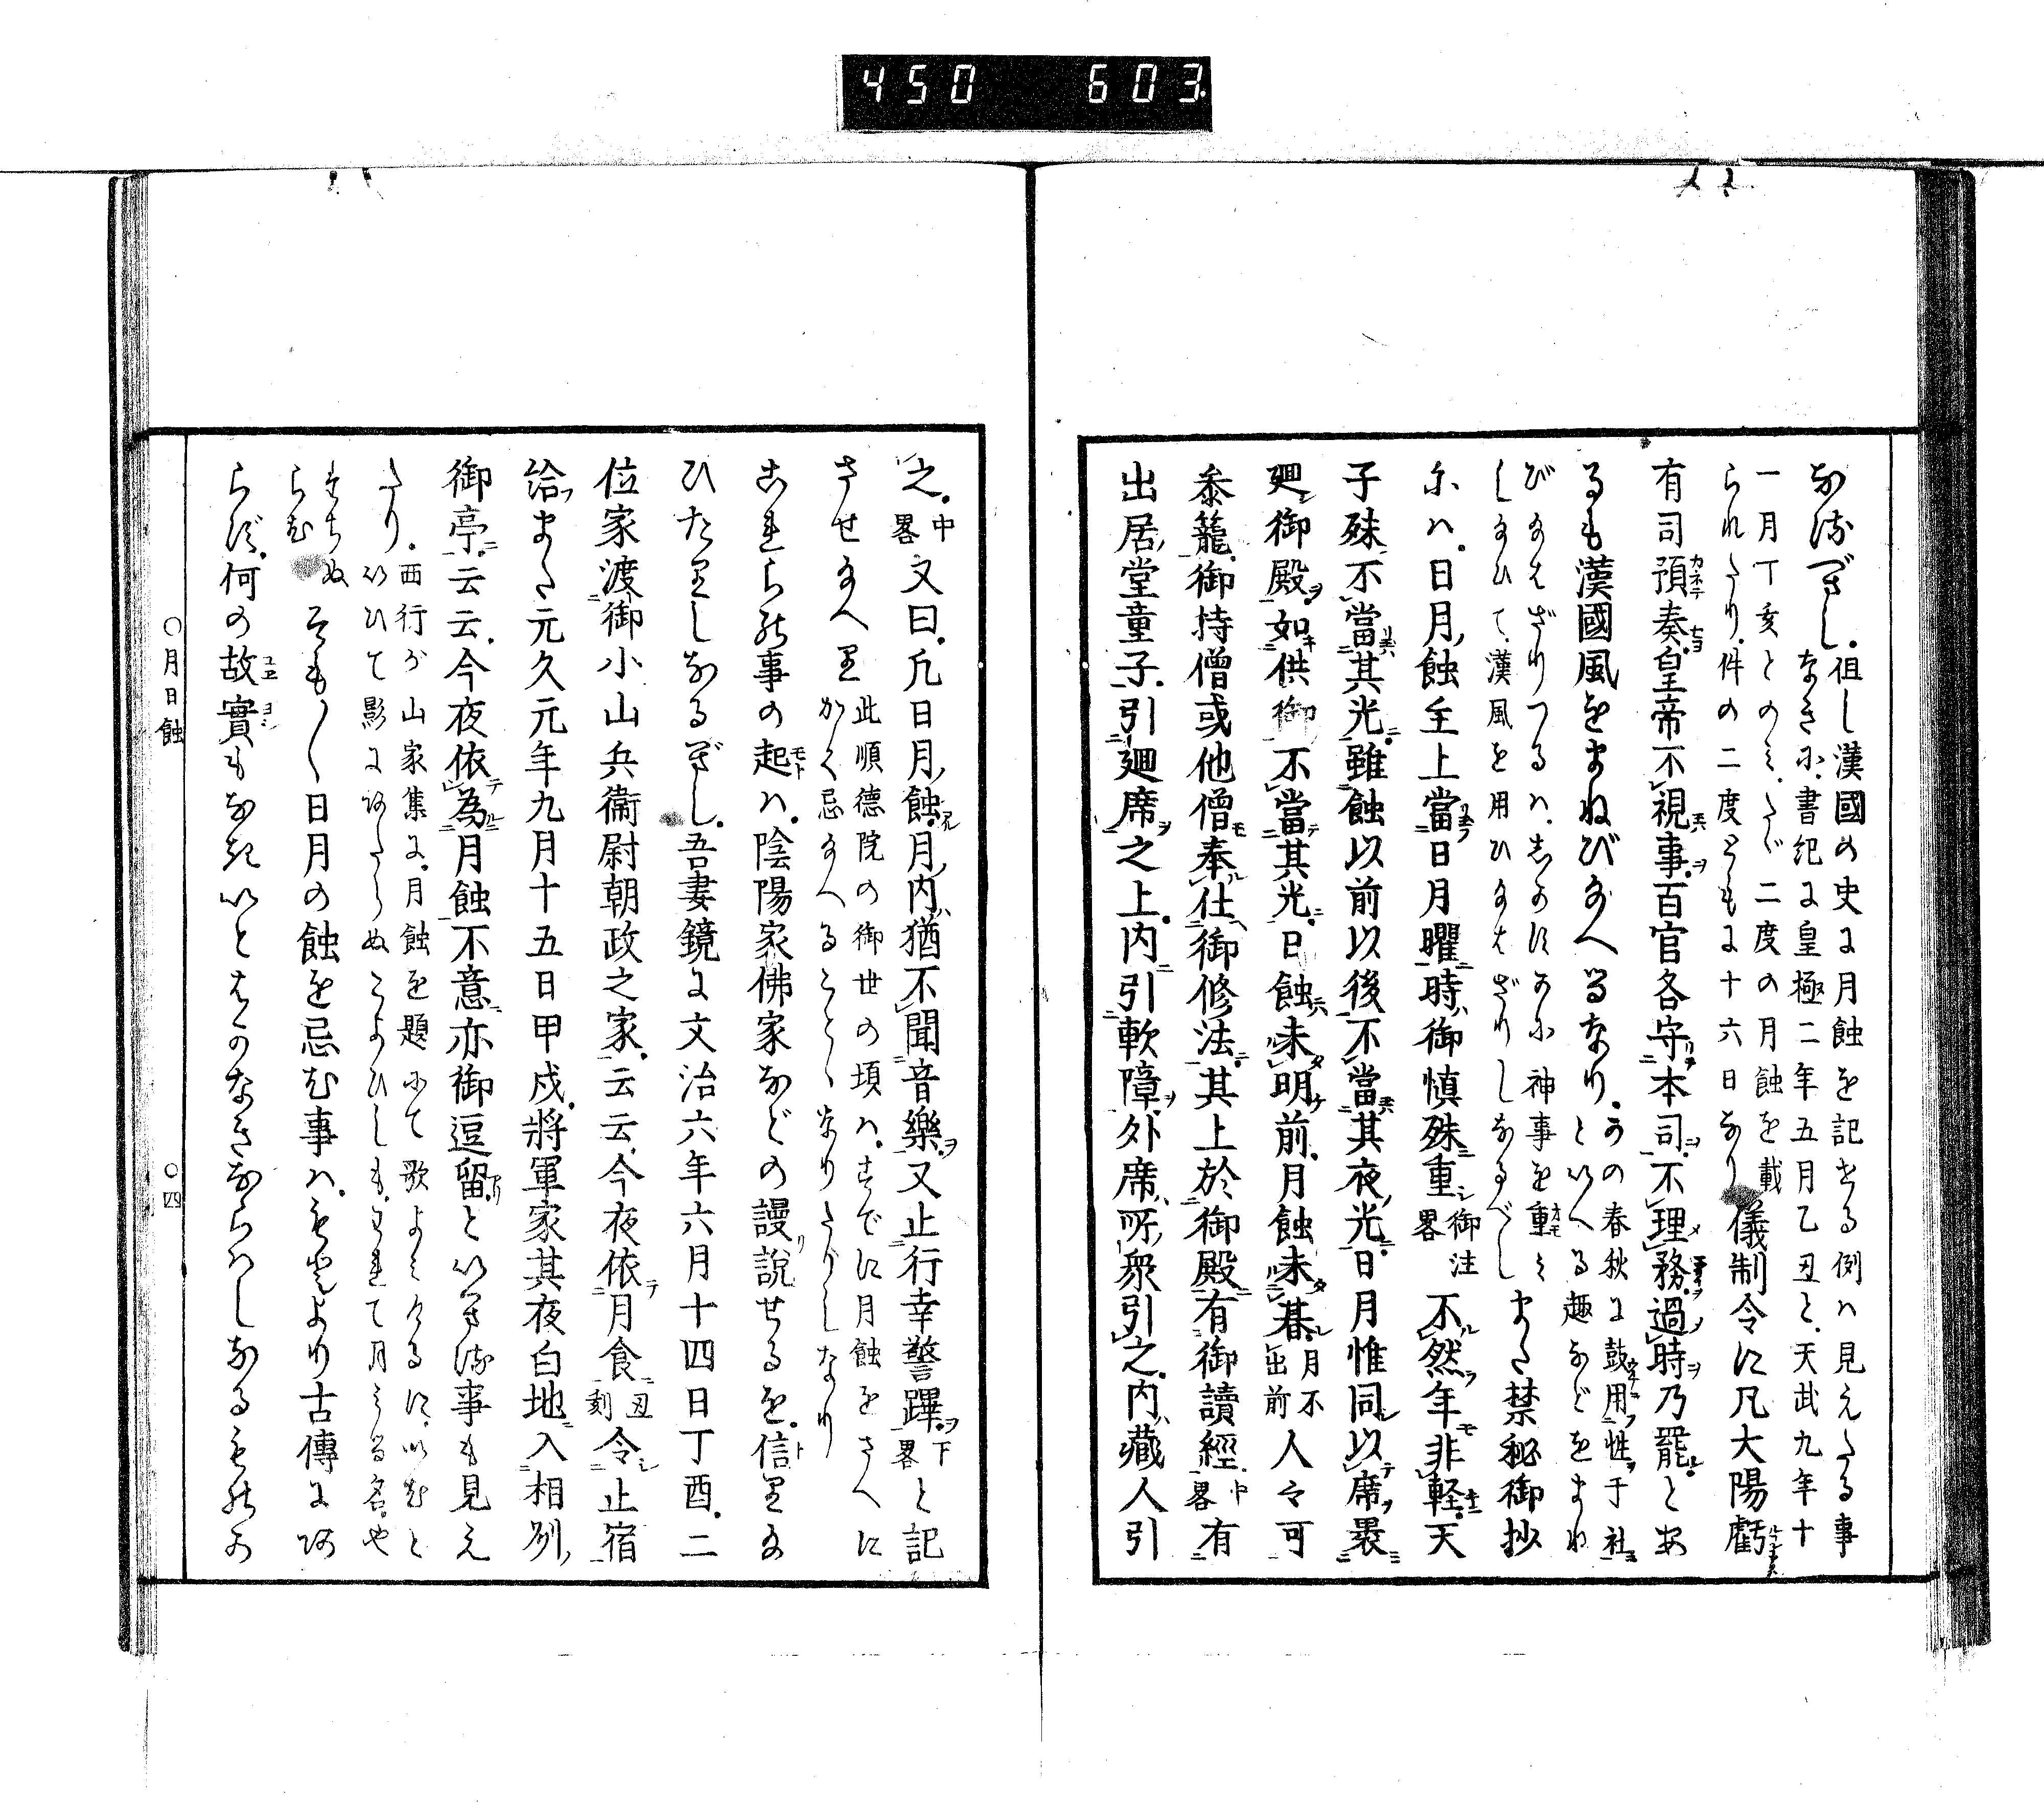 450 603
なるべし。但し漢國の史に月蝕を記せる例は見えたる事
なきに、書紀に皇極二年五月乙丑と、天武九年十
一月丁亥とのみ、たゞ二度の月蝕を載
られたり。件の二度ともに十六日なり 儀制令に凡大陽虧
有司預奏。皇帝不視事。百官各守本司。不理務。過時乃罷。とあ
るも漢國風をまねび給へるなり。かの春秋に鼓用牲于社
といへる趣などをまね
び給はざりつるは、
神事を重み
し給ひて、漢風を用ひ給はざりしなるべし また禁秘御抄
には。日月蝕主上當日月曜時御慎殊重 御注畧 不然年非軽。天
子殊不當其光。雖蝕以前以後不當其夜光。日月惟同。以席裹
廻御殿。如供御不當其光。日蝕未明前。月蝕未暮。月不出前 人々可
参籠。御持僧或他僧奉仕御修法。其上於御殿有御讀經。中畧 有
出居堂童子。引廻席之上。内引軟障。外席所衆引之。内藏人引
之。中畧 又曰。凡日月蝕。月内猶不聞音樂。又止行幸警蹕。下畧 と記
させ給へり 此順德院の御世の頃は。すでに月蝕をさへに
かく忌給へることゝなりたりしなり
これらの事の起は。陰陽家佛家などの謾說せるを。信り給
ひたりしなるべし。吾妻鏡に文治六年六月十四日丁酉。二
位家渡御小山兵衞尉朝政之家。云云。今夜依月食 丑刻 令止宿
給。また元久元年九月十五日甲戌。將軍家其夜白地入相州
御亭。云云。今夜依為月蝕不意亦御逗留。といへる事も見え
たり。西行が山家集に。月蝕を題にて歌よみけるに。いむと
いひて影にあたらぬこよひしも。われて月みる名や
たちぬらむ そも〱日月の蝕を忌む事は。もとより古傳にあ
らず。何の故實もなきいとはかなきならはしなるものか
○月日蝕
○四